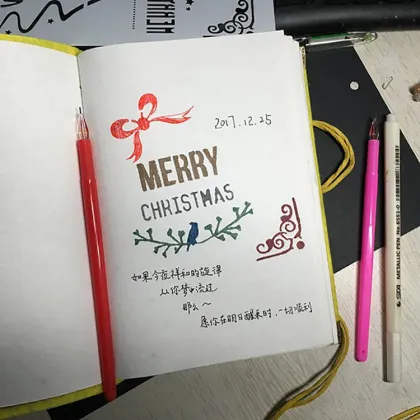 2017.12.25
MERRY
CHRISTMAS
如果今夜祥和的旋律
从你梦中流过
那么～
愿你在明日醒来时，一切顺利
METALLIC PEN No.6551-0